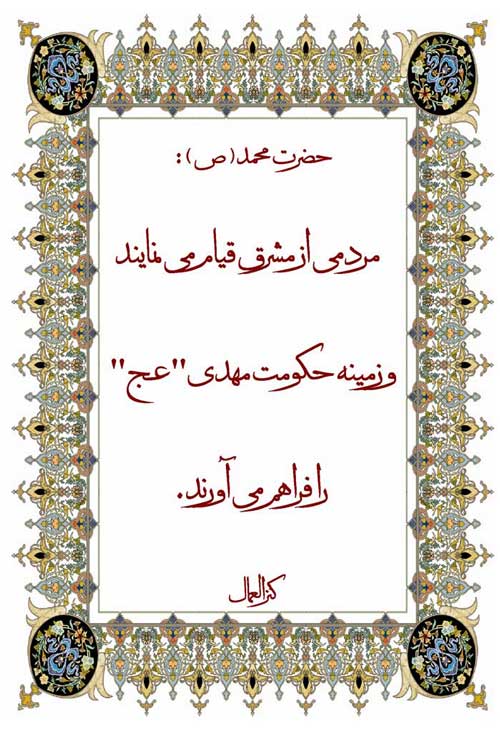 حضرت محمد(ص):
مردمی از مشرق قیام می نمایند
و زمینه حکومت مهدی "عج"
را فراهم می آورند.
کنزالعمال